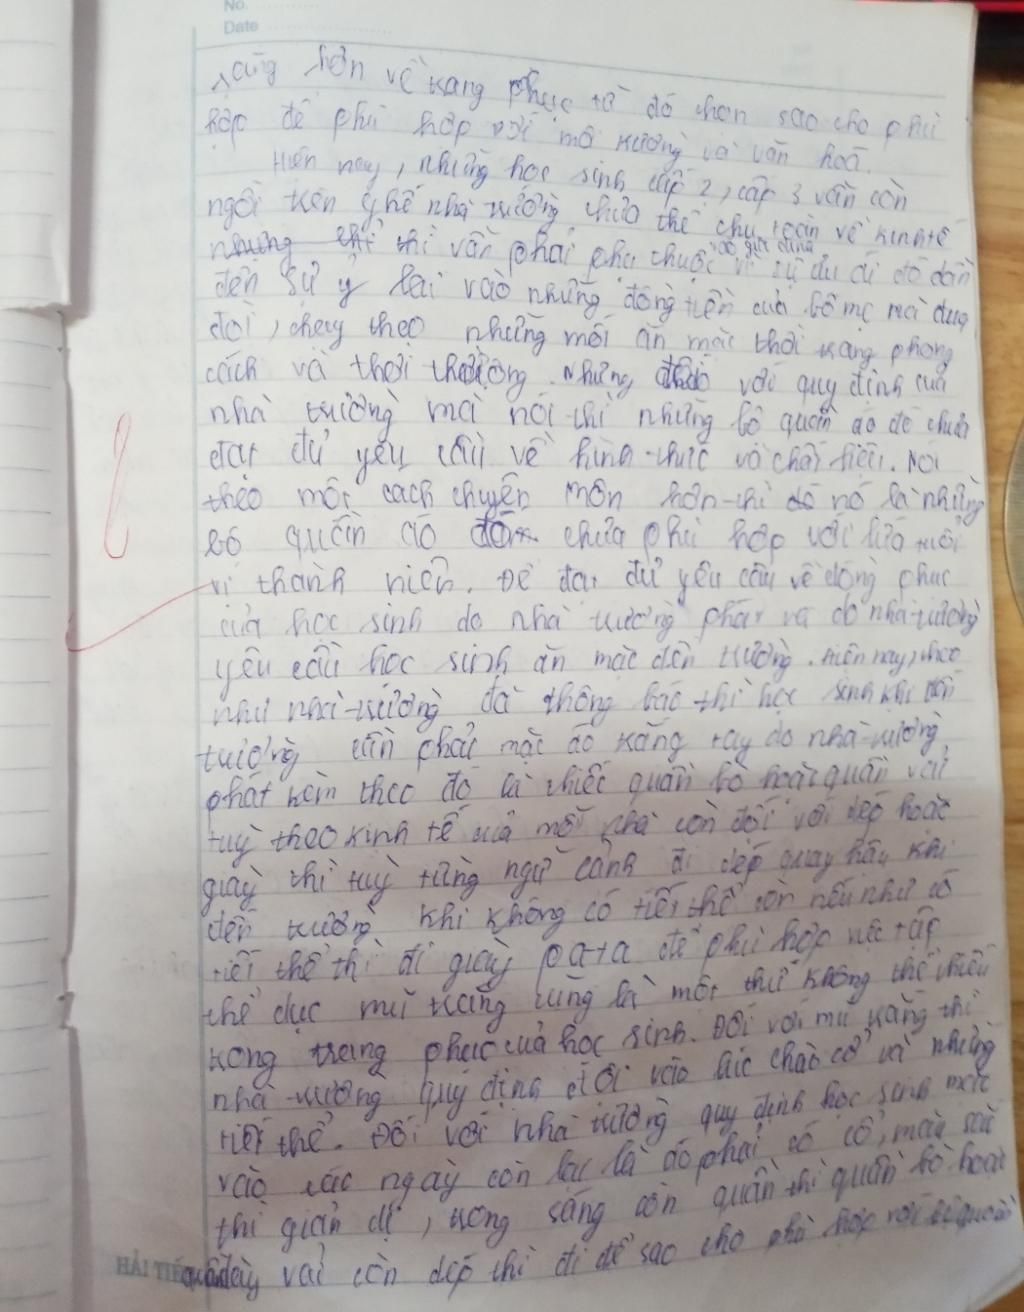 No.
Date
hơn về trang phục từ đó chọn sao cho phù
hợp để phù hợp với môi trường và văn hoá.
Hiện nay, những học sinh cấp 2, cấp 3 vẫn còn
ngồi trên ghế nhà trường chưa thể chu toàn về kinh tế
thì vẫn phải phụ thuộc vào gia đình vì sự đó dẫn
đến sự ỷ lại vào những đồng tiền của bố mẹ mà đua
đòi, chạy theo những mốt ăn mặc thời trang phong
cách và thời thượng. Nhưng với quy định của
nhà trường mà nói thì những bộ quần áo đó chưa
đạt đủ yêu cầu về hình thức và chất liệu. Nói
theo một cách chuyên môn hơn thì đó nó là những
bộ quần áo chưa phù hợp với lứa tuổi
vị thành niên. Để đạt đủ yêu cầu về đồng phục
của học sinh do nhà trường phát và do nhà trường
yêu cầu học sinh ăn mặc đến trường. Hiện nay, theo
như nhà trường đã thông báo thì học sinh khi đến
trường cần phải mặc áo trắng tay do nhà trường
phát kèm theo đó là chiếc quần bò hoặc quần vải
tuỳ theo kinh tế của mỗi nhà còn đối với dép hoặc
giày thì tuỳ từng ngữ cảnh đi dép quay hậu khi
đến trường khi không có tiết thể còn nếu như có
tiết thể thì đi giày pata để phù hợp việc tập
thể dục mũ trắng cũng là một thứ không thể thiếu
trong trang phục của học sinh. Đối với mũ trắng thì
nhà trường quy định đội vào lúc chào cờ và những
tiết thể. Đối với nhà trường quy định học sinh mặc
vào các ngày còn lại là áo phải có cổ, màu sắc
thì giản dị, trong sáng còn quần thì quần bò hoặc
vải còn dép thì đi để sao cho phù hợp với
HẢI TIẾN